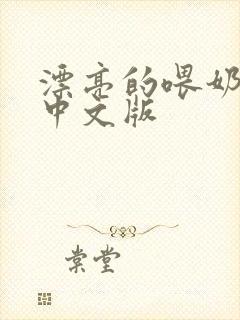 漂亮的喂奶
中文版
棠堂